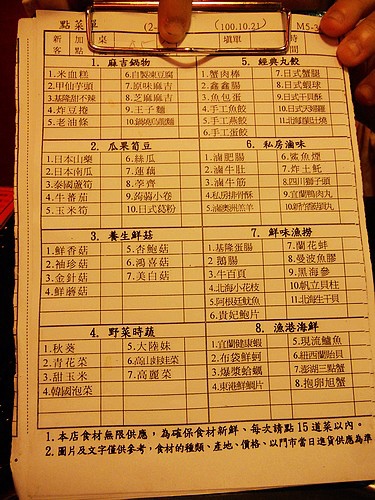 點菜單 (100.10.21) M5-3
新 加 桌 填單 時
客 點 間
1. 麻吉鍋物
1.米血糕 6.自製凍豆腐
2.甲仙芋頭 7.原味麻吉
3.基隆甜不辣 8.芝麻麻吉
4.炸豆捲 9.王子麵
5.老油條 10.鍋燒烏龍麵
5. 經典丸餃
1.蟹肉棒 7.日式蟹腿
2.鑫鑫腸 8.日式蝦球
3.魚包蛋 9.日式干貝酥
4.手工魚餃 10.日式天婦羅
5.手工燕餃
6.手工蛋餃
2. 瓜果筍豆
1.日本山藥 6.絲瓜
2.日本南瓜 7.蓮藕
3.泰國蘆筍 8.荸薺
4.牛蕃茄 9.蒟蒻小卷
5.玉米筍 10.日式葛粉
6. 私房滷味
1.滷肥腸 6.鯊魚煙
2.滷牛肚 7.炸土魠
3.滷牛筋 8.四川獅子頭
4.私房排骨酥 9.宜蘭鴨肉丸
5.滷澳洲羔羊
3. 養生鮮菇
1.鮮香菇 5.杏鮑菇
2.袖珍菇 6.鴻喜菇
3.金針菇 7.美白菇
4.鮮蘑菇
7. 鮮味漁撈
1.基隆蛋腸 7.蘭花蚌
2.鵝腸 8.曼波魚膠
3.牛百頁 9.黑海參
4.北海小花枝 10.帆立貝柱
5.阿根廷魷魚 11.北海生干貝
6.貴妃鮑片
4. 野菜時蔬
1.秋葵 5.大陸妹
2.青花菜 6.高山娃娃菜
3.甜玉米 7.高麗菜
4.韓國泡菜
8. 漁港海鮮
1.宜蘭健康蝦 5.現流鱸魚
2.布袋鮮蚵 6.紐西蘭貽貝
3.爆漿蛤蠣 7.澎湖三點蟹
4.東港鮮鯛片 8.抱卵旭蟹
1.本店食材無限供應，為確保食材新鮮、每次請點 15 道菜以內。
2.圖片及文字僅供參考，食材的種類、產地、價格、以門市當日進貨供應為準